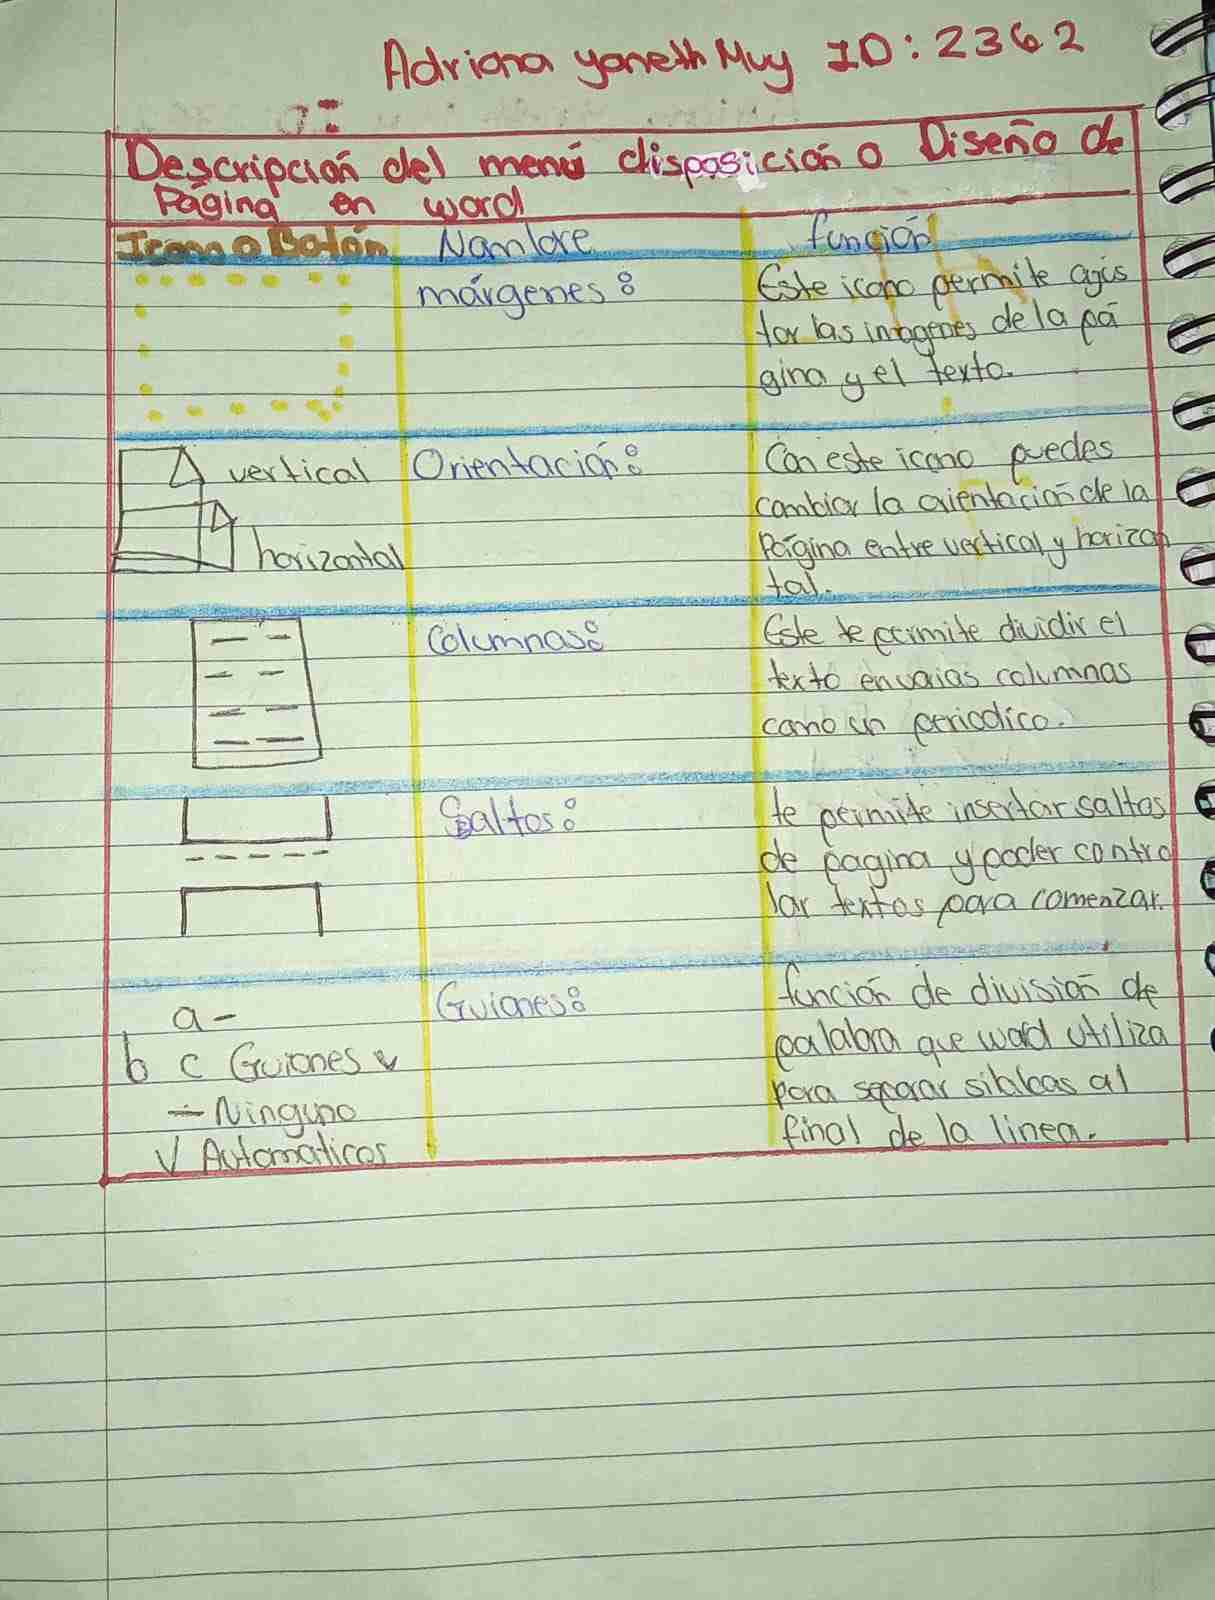 Adriana yaneth Muy ID: 2362
Descripción del menú disposición o Diseño de
Página en word
Icono o Botón
Nombre
función
márgenes:
Este icono permite ajus
tar las imágenes de la pá
gina y el texto.
vertical
horizontal
Orientación:
Con este icono puedes
cambiar la orientación de la
Página entre vertical y horizon
tal.
Columnas:
Este te permite dividir el
texto en varias columnas
como un periodico.
Saltos:
te permite insertar saltos
de pagina y poder contro
lar textos para comenzar.
a-
b c Guiones v
- Ninguno
√ Automaticos
Guiones:
función de división de
palabra que word utiliza
para separar al
final de la linea.